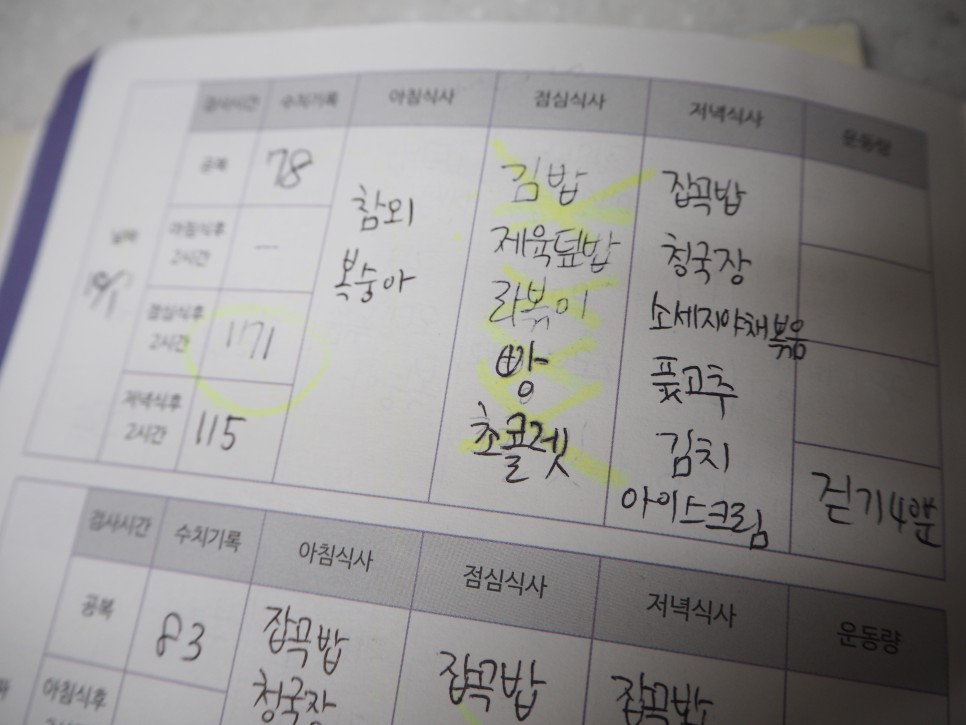 검사시간 수치기록 아침식사 점심식사 저녁식사 운동량
날짜
10/1
공복 78
아침식후
2시간 —
점심식후
2시간 171
저녁식후
2시간 115
참외
복숭아
김밥
제육덮밥
라볶이
빵
초콜렛
잡곡밥
청국장
소세지야채볶음
풋고추
김치
아이스크림
걷기4만
검사시간 수치기록 아침식사 점심식사 저녁식사 운동량
공복 83
아침식후
잡곡밥
청국장
잡곡밥
잡곡밥